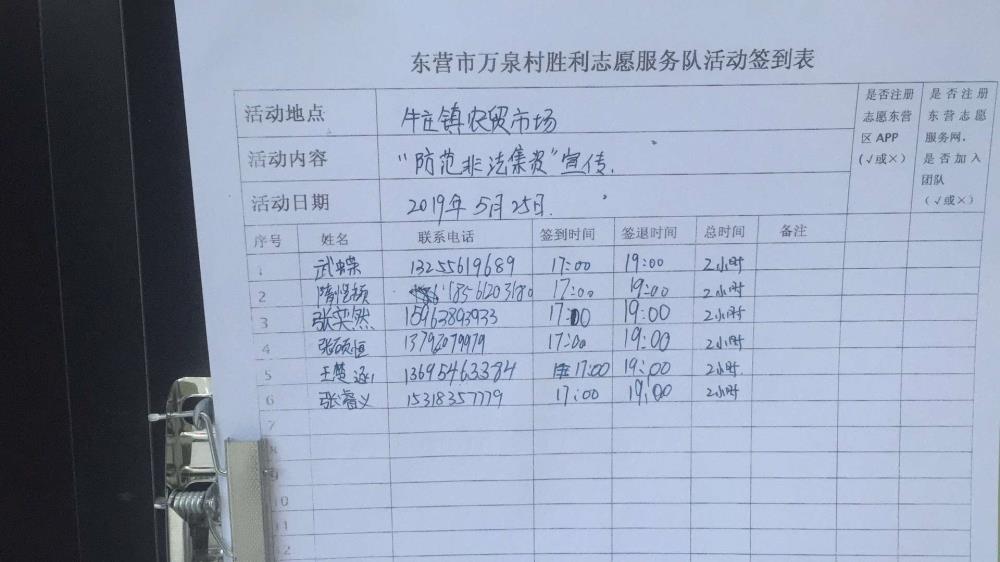 东营市万泉村胜利志愿服务队活动签到表
活动地点 牛庄镇农贸市场
活动内容 “防范非法集资”宣传.
活动日期 2019年5月25日.
是否注册
志愿东营
区APP
(√或×)
是否注册
东营志愿
服务网,
是否加入
团队
(√或×)
序号 姓名 联系电话 签到时间 签退时间 总时间 备注
1 13255619689 17:00 19:00 2小时
2 18561203180 17:00 19:00 2小时
3 张奕然 15963893933 17:00 19:00 2小时
4 张硕恒 13792079979 17:00 19:00 2小时
5 王楚涵 13695463384 17:00 19:00 2小时
6 张睿义 15318357779 17:00 19:00 2小时
7
8
9
10
11
12